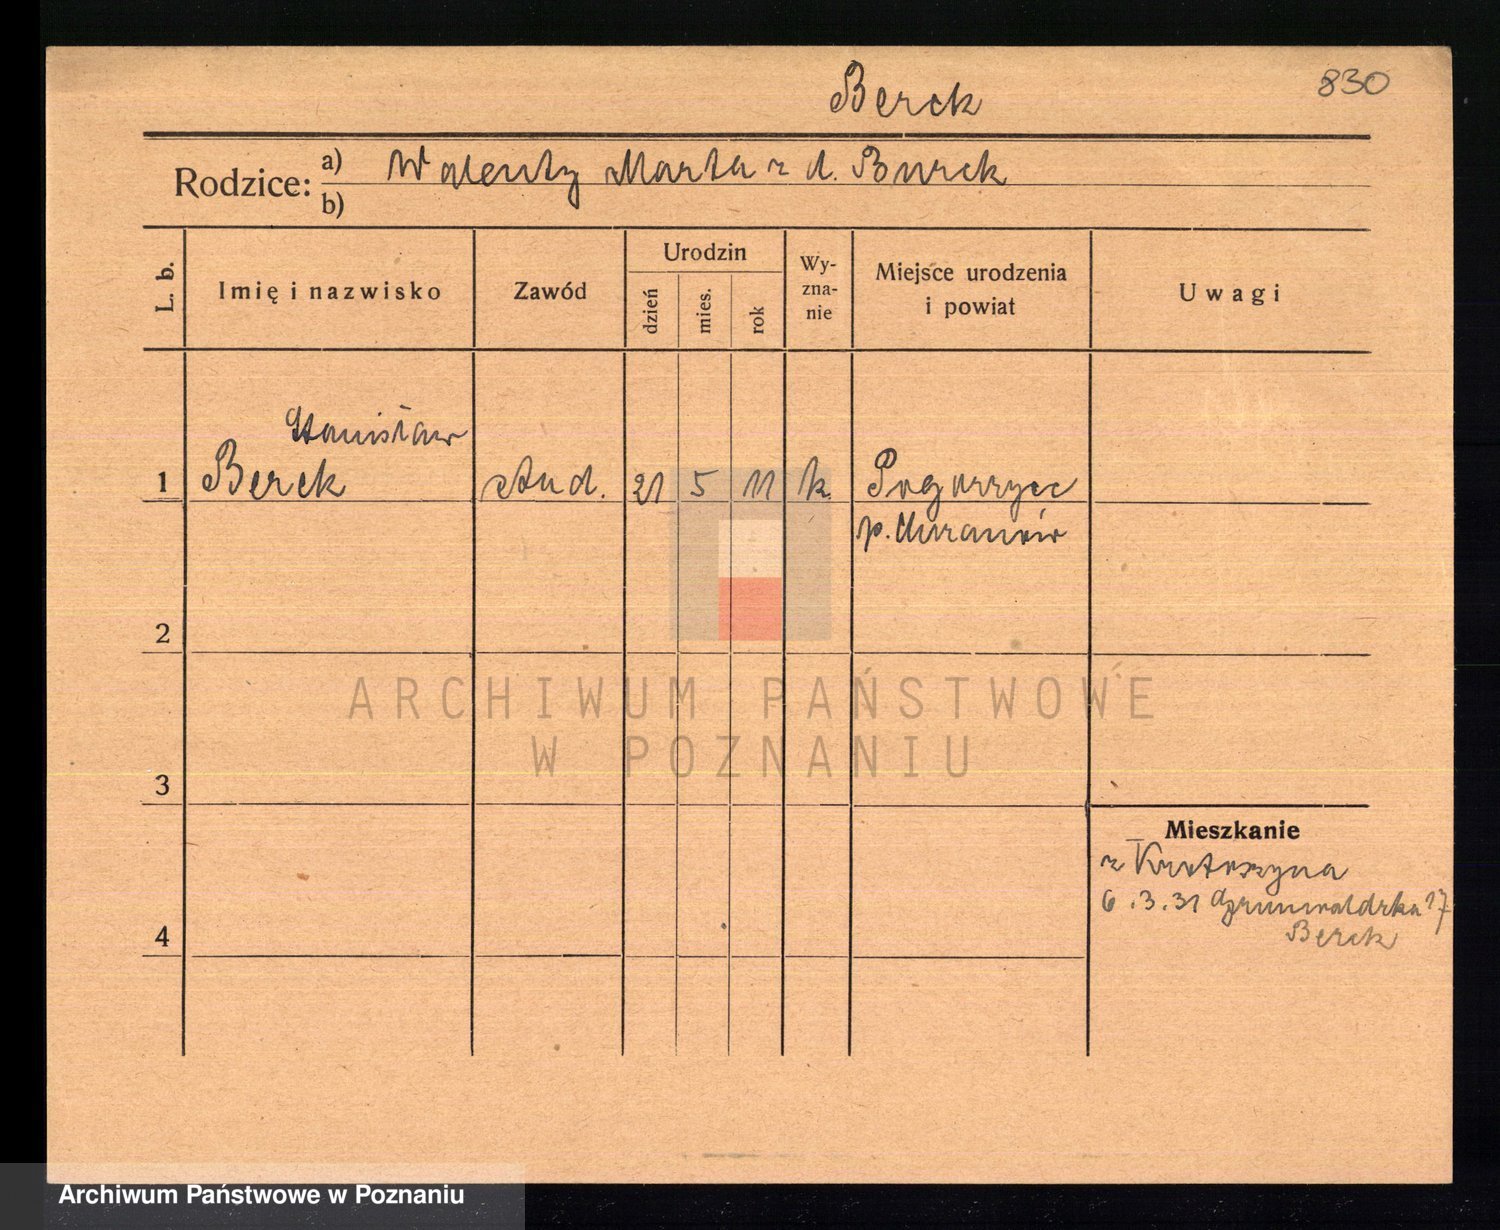 Berek
830
Rodzice:
a) Walenty Marta z d. Burek
b)
L. b.
Imię i nazwisko
Zawód
Urodzin
dzień
mies.
rok
Wy-
zna-
nie
Miejsce urodzenia
i powiat
Uwagi
Stanisław
1 Berek stud. 21 5 11 k.
p.
2
3
4
Mieszkanie
z Krotoszyna
6.3.31 Grunwaldzka 17
Berek
ARCHIWUM PAŃSTWOWE
W POZNANIU
Archiwum Państwowe w Poznaniu